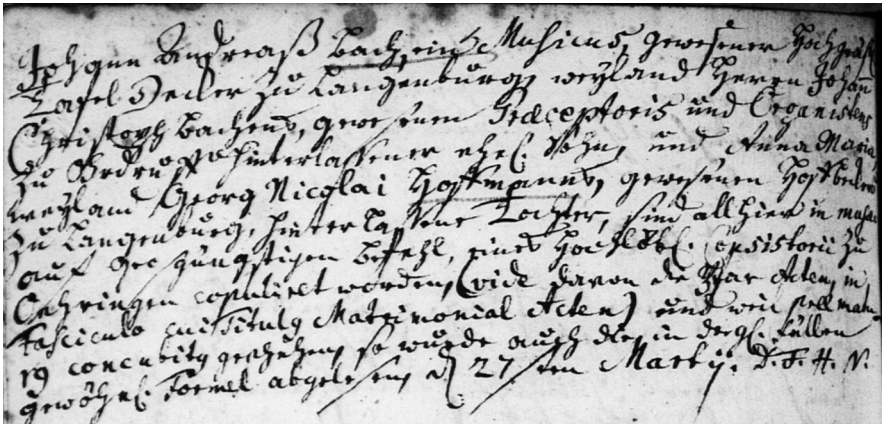 Johann Andreaß Bach, ein Musicus, gewesener Hochgräfl.
Tafel Decker zu Langenburg, weyland Herrn Johann
Christoph Bachens, gewesenen Præceptoris und Organistens
zu Ordruff hinterlassener ehel. Sohn, und Anna Maria
weyland Georg Nicolai Hoffmanns, gewesenen Hoffbecken
zu Langenburg, hinterlassene Tochter, sind allhier in
auf gnstigen befehl, eines Hochlöbl. Consistorii zu
Oehringen copulirt worden, (vide davon die Pfar Acten, in
Fasciculo cui Titulg Matrimonial Acten) und weil
rg concubitg geschehen, so wurde auch die, in dergl. fällen
gewöhnl. Formel abgelesen, d 27sten Martij. D. F. H. N.